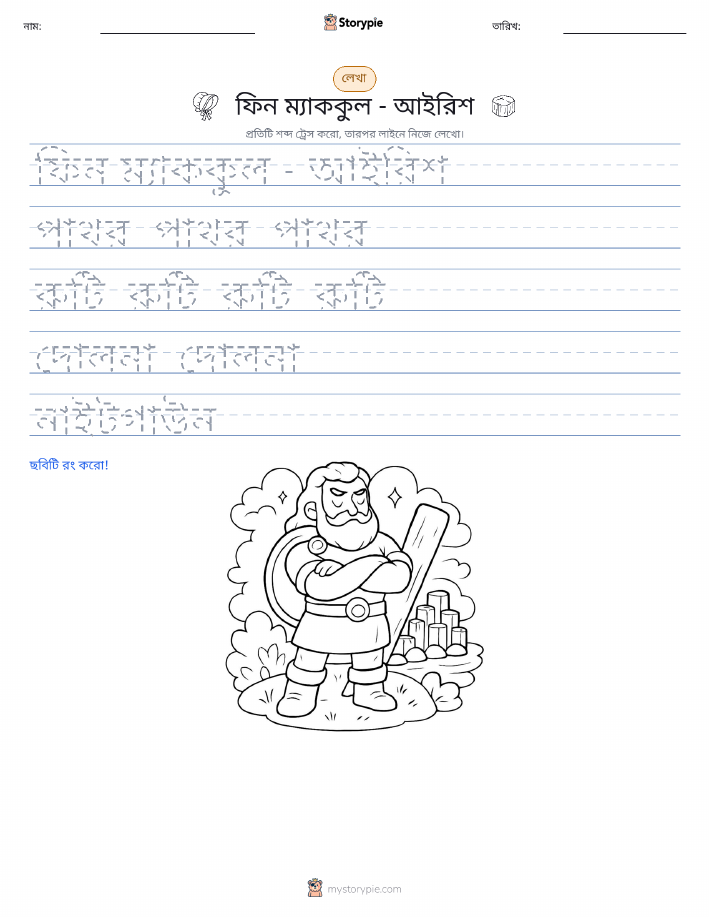 নাম:
Storypie
তারিখ:
লেখা
ফিন ম্যাককুল - আইরিশ
প্রতিটি শব্দ ট্রেস করো, তারপর লাইনে নিজে লেখো।
ফিন ম্যাককুল - আইরিশ
পাথর পাথর পাথর
রুটি রুটি রুটি রুটি
দোলনা দোলনা
নাইটগাউন
ছবিটি রং করো!
mystorypie.com